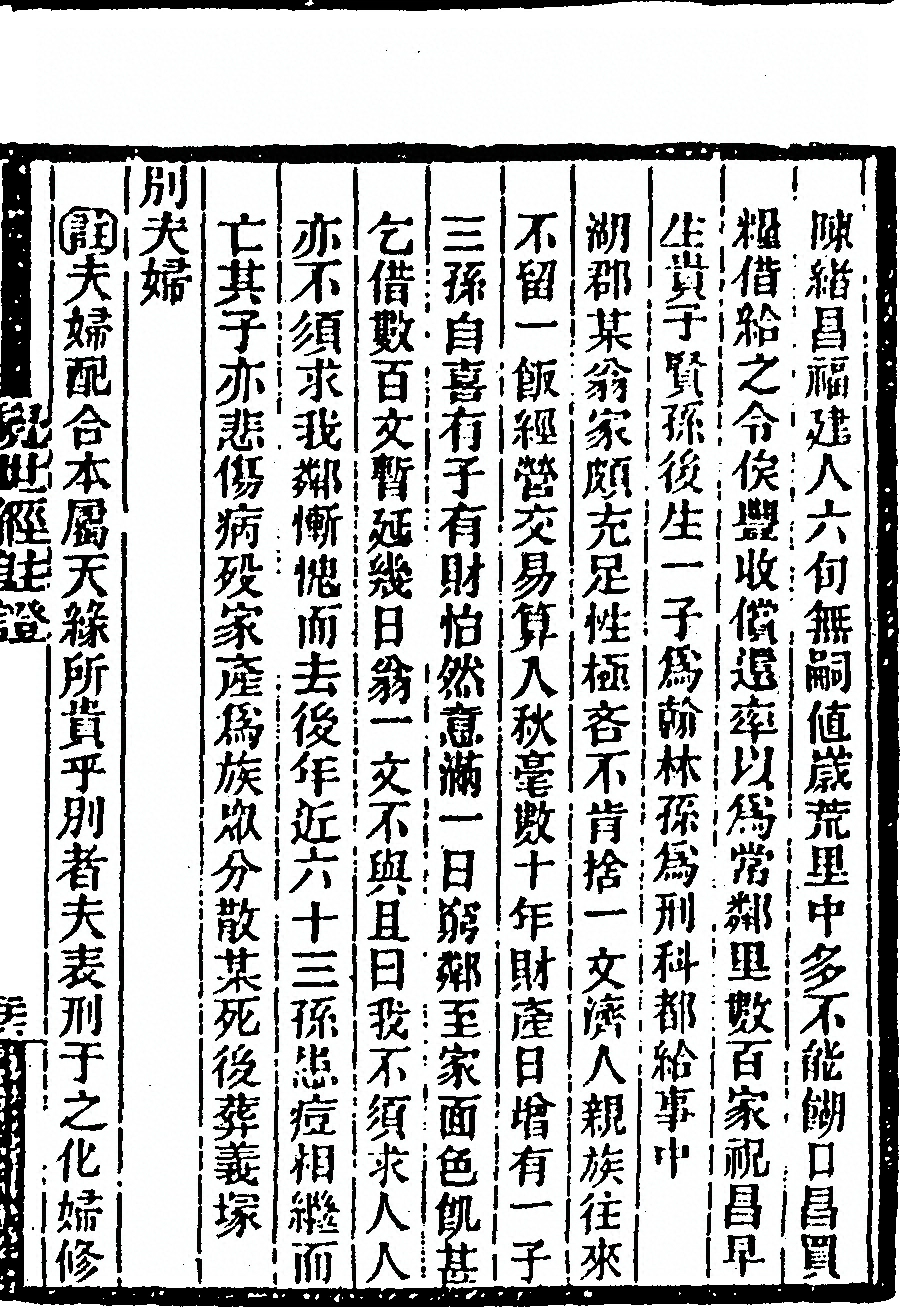 陳緒昌福建人六旬無嗣值歲荒里中多不能餬口昌買
糧借給之令俟豐收償還率以爲常鄰里數百家祝昌早
生貴子賢孫後生一子爲翰林孫爲刑科都給事中
湖郡某翁家頗充足性極吝不肯捨一文濟人親族往來
不留一飯經營交易算入秋毫數十年財產日增有一子
三孫自喜有子有財怡然意滿一日窮鄰至家面色飢甚
乞借數百文暫延幾日翁一文不與且曰我不須求人人
亦不須求我鄰慚愧而去後年近六十三孫患痘相繼而
亡其子亦悲傷病歿家產爲族眾分散某死後葬義塚
別夫婦
註夫婦配合本屬天緣所貴乎別者夫表刑于之化婦修
世經註證